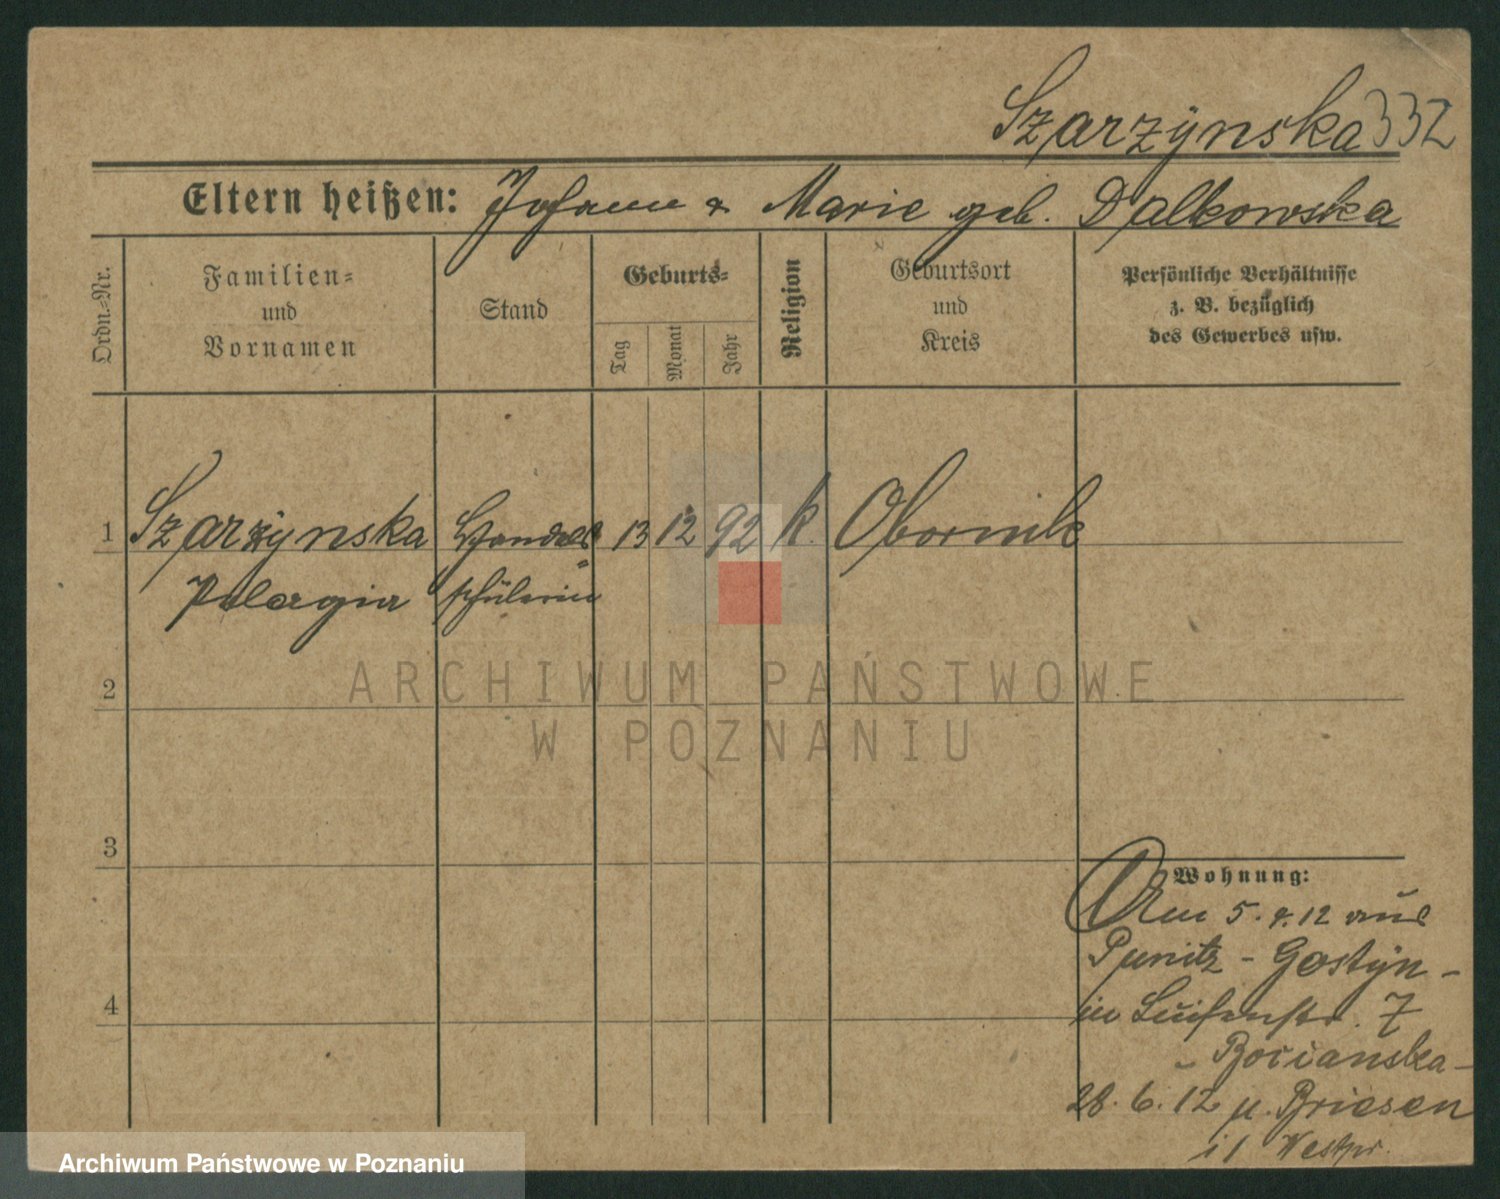 Szarzynska 332
Eltern heißen: Johann & Marie geb. Dalkowska
Ordn.-Nr.
Familien-
und
Vornamen
Stand
Geburts-
Tag
Monat
Jahr
Religion
Geburtsort
und
Kreis
Persönliche Verhältnisse
z. B. bezüglich
des Gewerbes usw.
1 Szarzynska Handels 13 12 92 k. Obornik
Pelagia schülerin
2
3
4
Wohnung:
Am 5. 4. 12 aus
Punitz - Gostyn -
in Luisenstr. 7
Bocianska -
28. 6. 12 n. Briesen
i/ Westpr.
ARCHIWUM PAŃSTWOWE
W POZNANIU
Archiwum Państwowe w Poznaniu